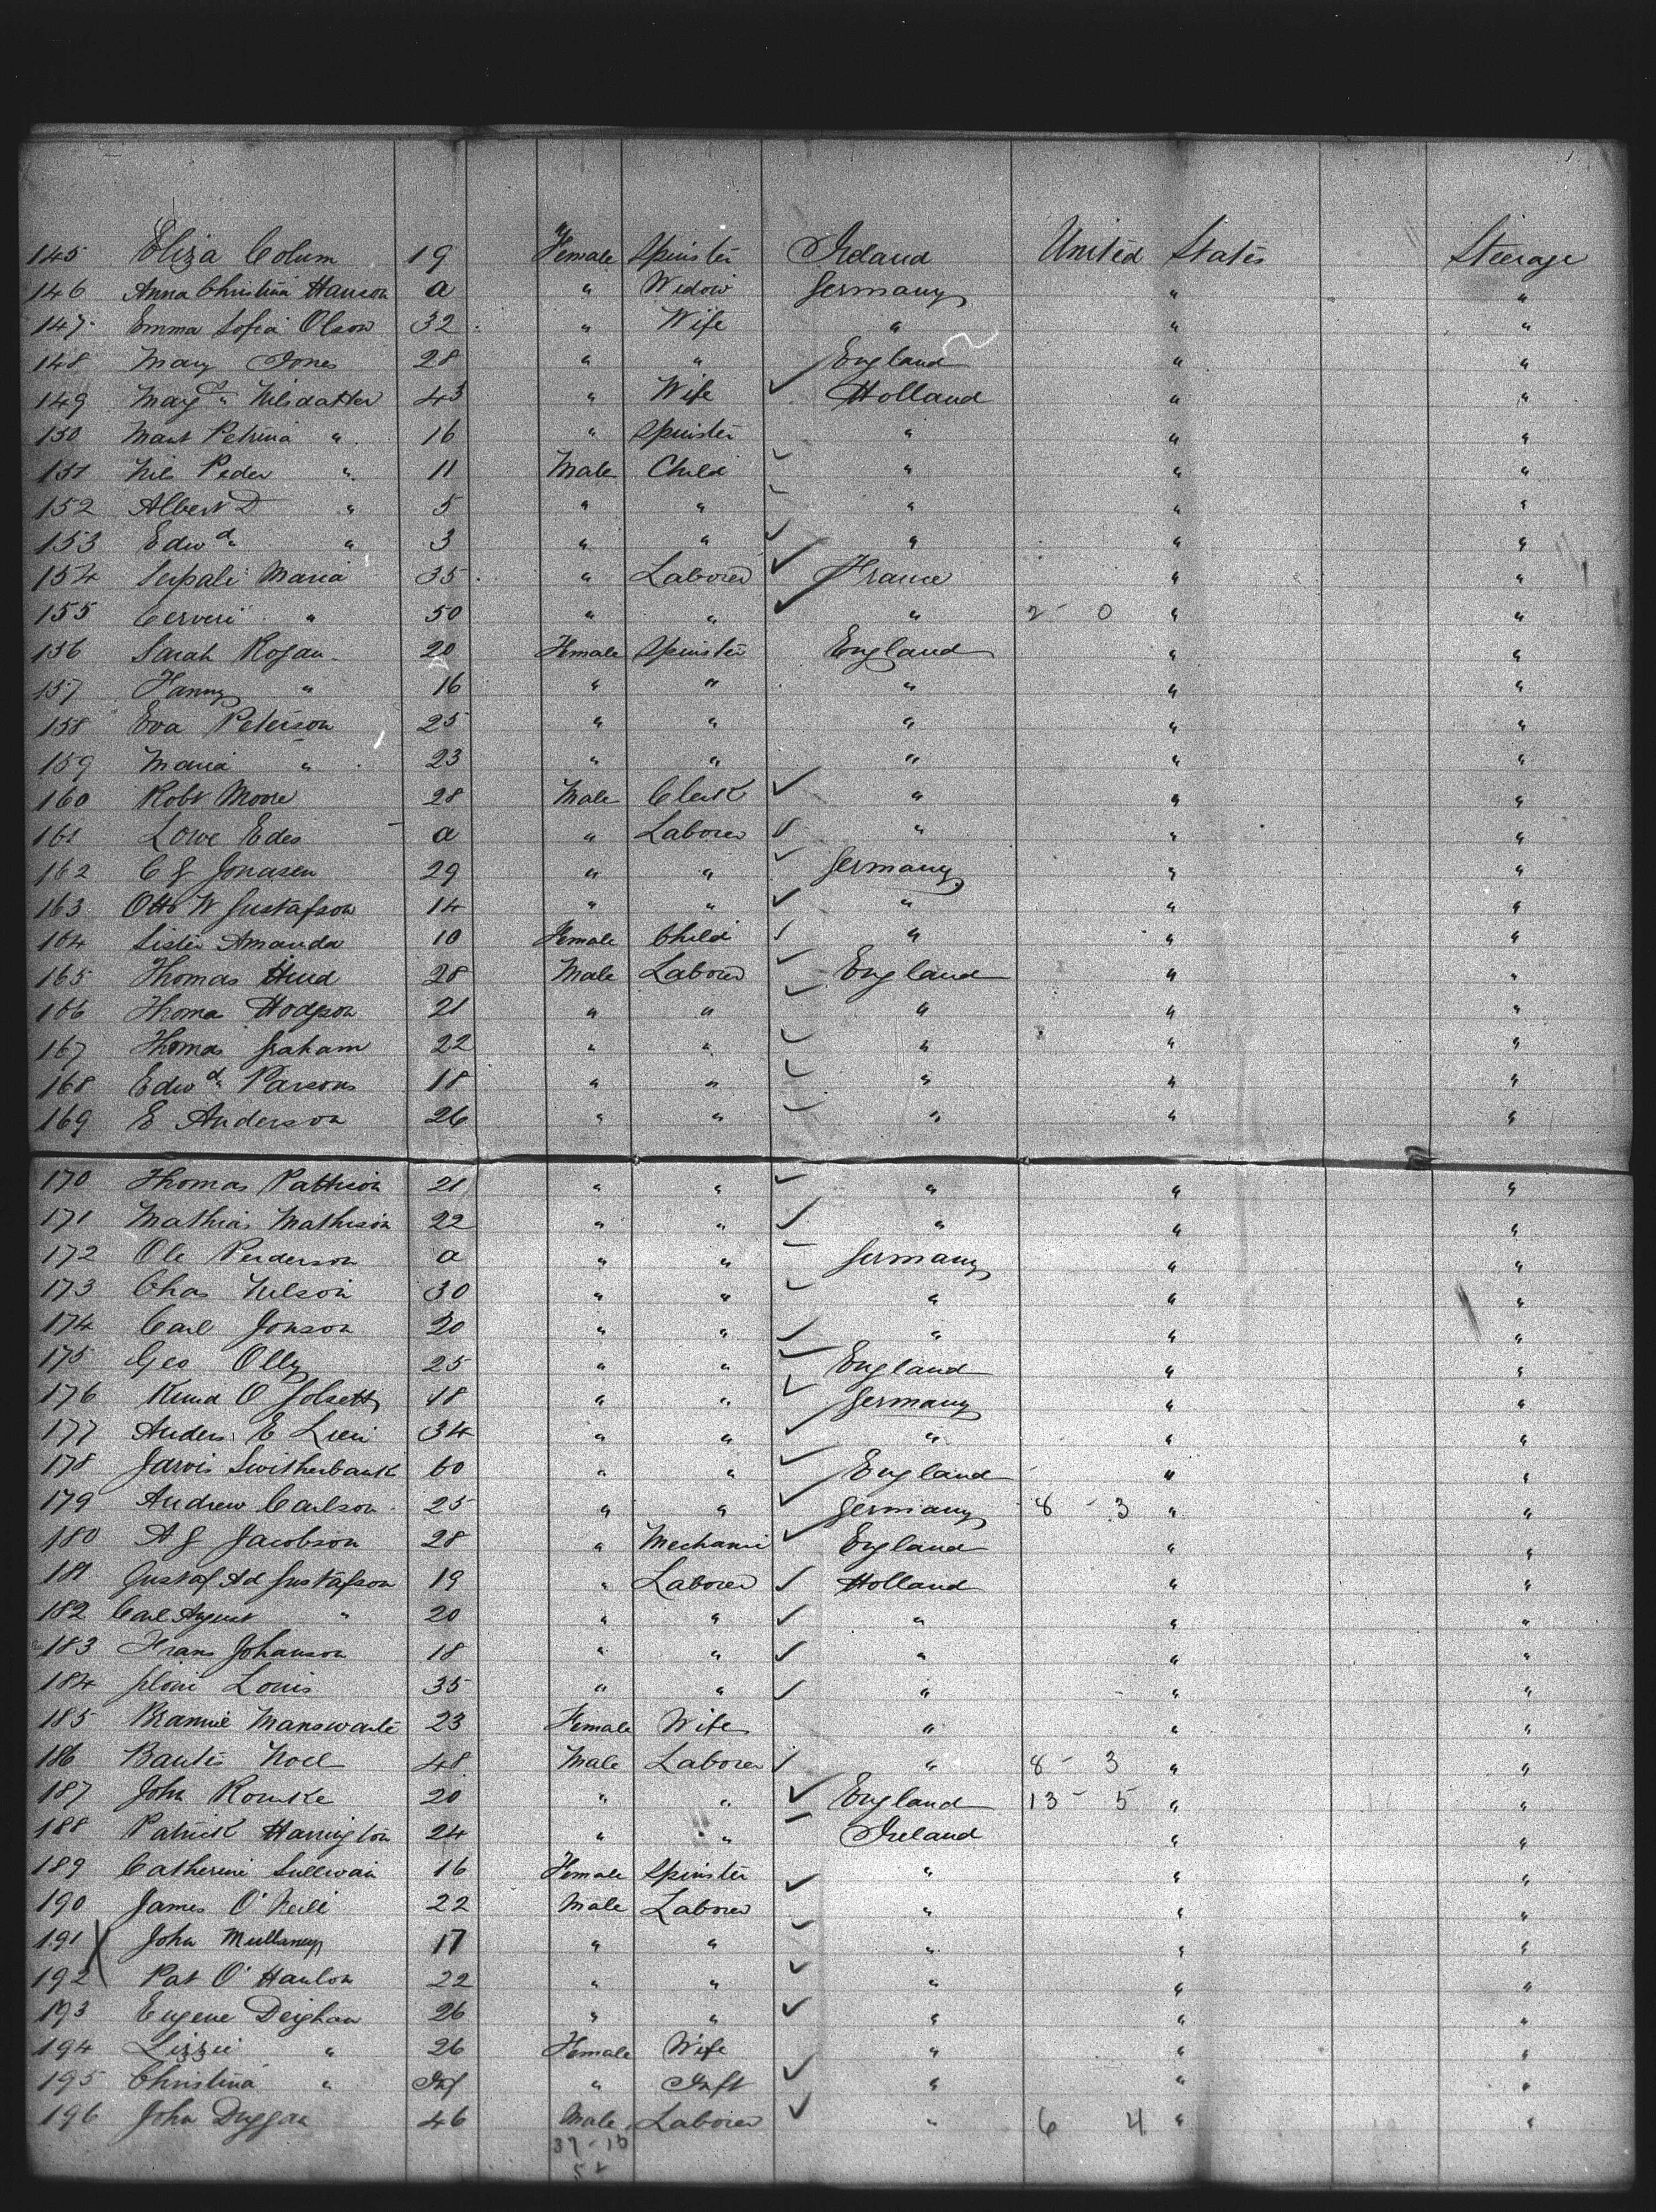 145 Eliza Colum 19 Female Spinster Ireland United States Steerage
146 Anna Christina Hanson a " Widow Germany " "
147 Emma Sofia Olson 32 " Wife " " "
148 Mary Jones 28 " " England " "
149 Mary Nilsdatter 43 " Wife ✓ Holland " "
150 Mart Petrina " 16 " Spinster " " "
151 Nils Peder " 11 Male Child ✓ " " "
152 Albert D " 5 " " " " "
153 Edwd " 3 " " ✓ " " "
154 Maria 35 " Laborer ✓ France " "
155 " 50 " " ✓ " 2 - 0 " "
156 Sarah Rogan 20 Female Spinster England " "
157 Fanny " 16 " " " " "
158 Eva Peterson 25 " " " " "
159 Maria " 23 " " " " "
160 Robt Moore 28 Male Clerk ✓ " " "
161 Lowe Edes a " Laborer ✓ " " "
162 C G Jonasen 29 " " ✓ Germany " "
163 Otto W Gustafson 14 " " ✓ " " "
164 Sister Amanda 10 Female Child ✓ " " "
165 Thomas 28 Male Laborer ✓ England " "
166 Thoma Hodgson 21 " " ✓ " " "
167 Thomas Graham 22 " " ✓ " " "
168 Edwd Parsons 18 " " ✓ " " "
169 E Anderson 26 " " ✓ " " "
170 Thomas Pattison 21 " " ✓ " " "
171 Mathias Mathison 22 " " ✓ " " "
172 Ole Perderson a " " Germany " "
173 Chas Nilson 30 " " ✓ " " "
174 Carl Jonson 20 " " ✓ " " "
175 Geo Olly 25 " " ✓ England " "
176 Knud O 48 " " ✓ Germany " "
177 Anders E 34 " " ✓ " " "
178 Jarvis Switherbank 60 " " ✓ England " "
179 Andrew Carlson 25 " " ✓ Germany 8 - 3 " "
180 A G Jacobson 28 " Mechanic ✓ England " "
181 Gustaf Ad Gustafson 19 " Laborer ✓ Holland " "
182 Carl August " 20 " " ✓ " " "
183 Frans Johanson 18 " " ✓ " " "
184 Louis 35 " " ✓ " " "
185 23 Female Wife " " "
186 Noel 48 Male Laborer ✓ " 8 - 3 " "
187 John Rourke 20 " " ✓ England 13 - 5 " "
188 Patrick Harrington 24 " " Ireland " "
189 Catherine Sullivan 16 Female Spinster " " "
190 James O'Neil 22 Male Laborer ✓ " " "
191 John Mullaney 17 " " ✓ " " "
192 Pat O'Hanlon 22 " " ✓ " " "
193 Eugene Deighan 26 " " ✓ " " "
194 Lizzie " 26 Female Wife " " "
195 Christina " Inf " Inft ✓ " " "
196 John Duggan 46 Male Laborer ✓ " 6 4 " "
37 - 15
52